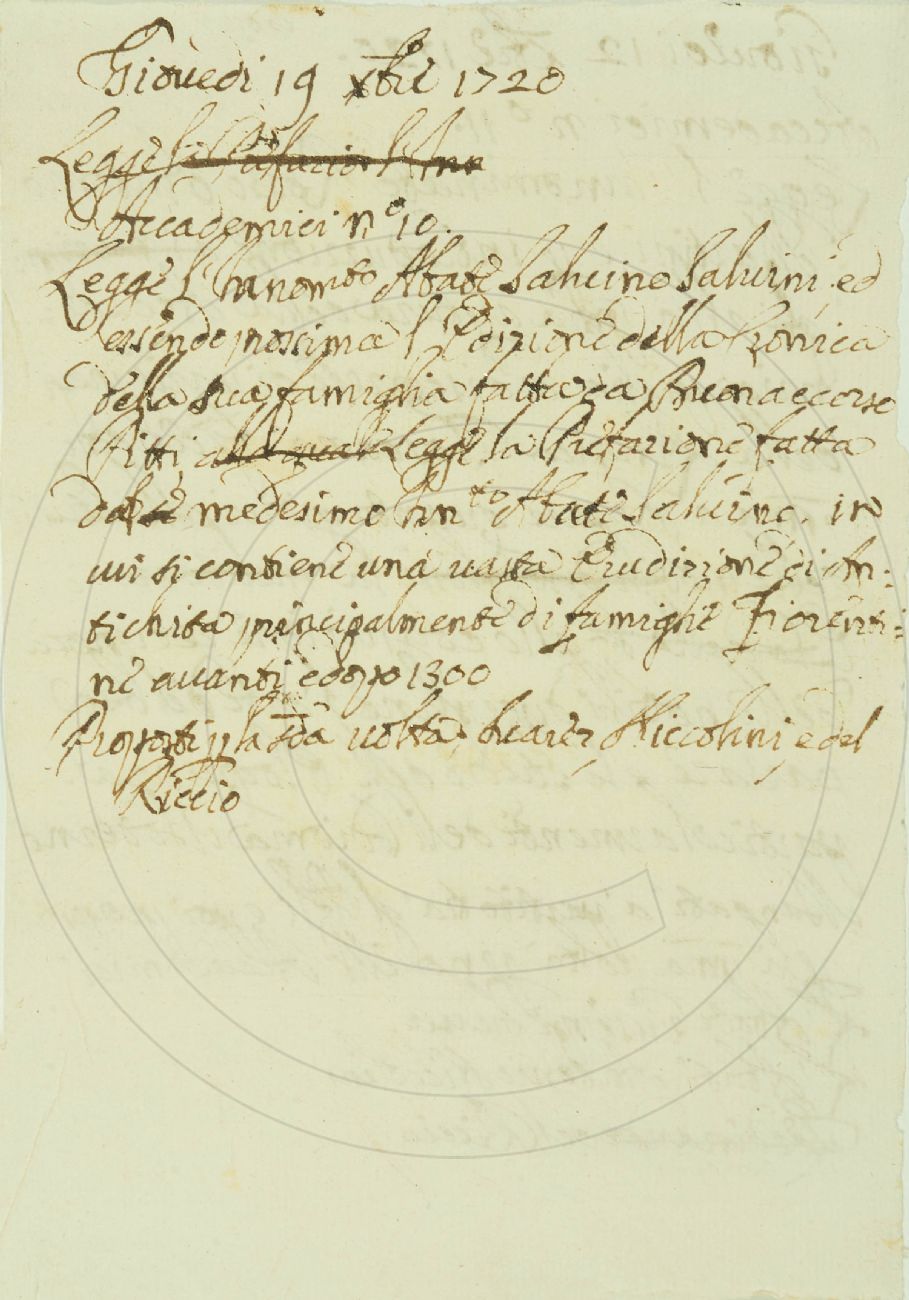 Giovedi 19 Xbre 1720
Legge la Prefazion l'Ann
Accademici n.° 10.
Legge l'Annomto Abate Salvino Salvini, ed
essendo prossima l'Edizione della Cronica
della sua famiglia fatta da Buonaccorso
Pitti, alla quale Legge la Prefazione fatta
da se medesimo Annto Abate Salvino, in
cui si contiene una vasta Erudizione di An:
tichita principalmente di famiglie Fiorenti:
ne avanti e dopo 1300
Proposti p la 2da volta, Suarez, Niccolini, e del
Riccio